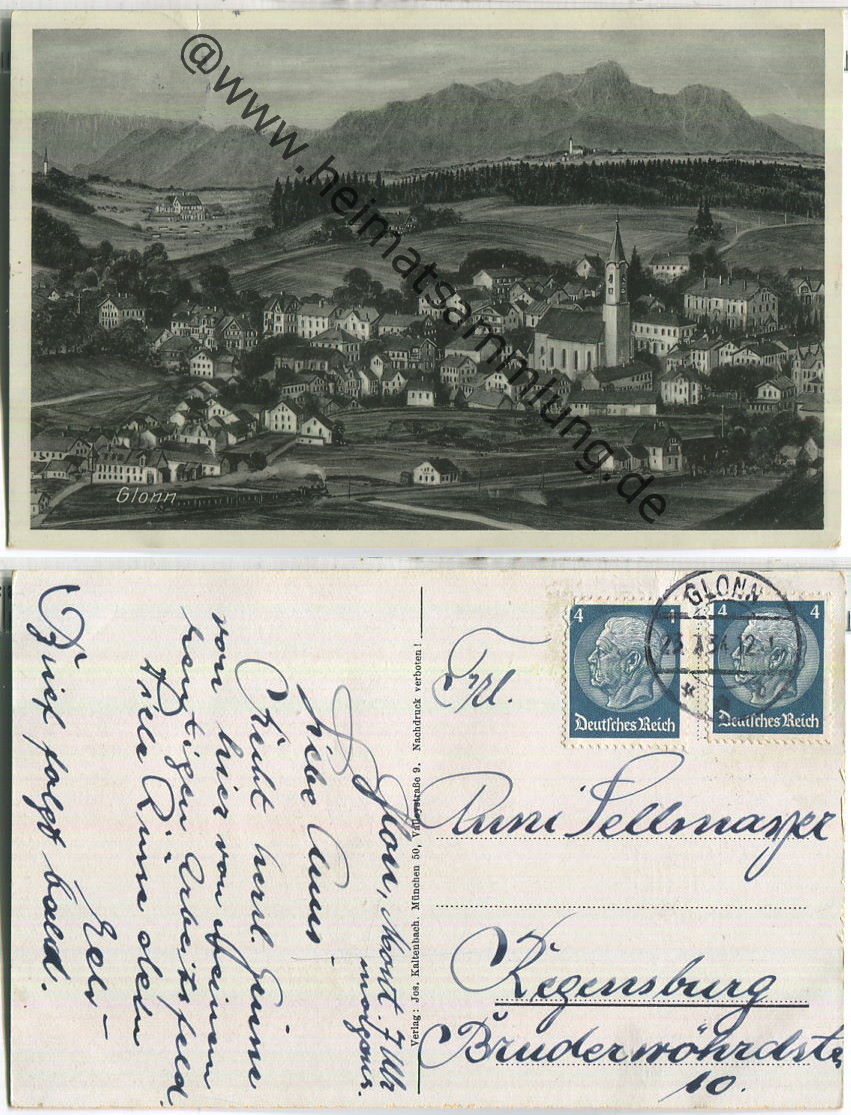 @www.heimatsammlung.de
Glonn
Glonn, Mont. 7 Uhr
morgens.
Liebe Anni
Recht herzl. Grüße
von hier von meinem
heutigen Arbeitsfeld.
Viele Küsse dein
Brief folgt bald.
Verlag: Jos. Kaltenbach. München 50, Valleystraße 9. Nachdruck verboten!
Frl.
Anni Sellmayer
Regensburg
Bruderwöhrdstr
10.
4
Deutsches Reich
4
Deutsches Reich
GLONN